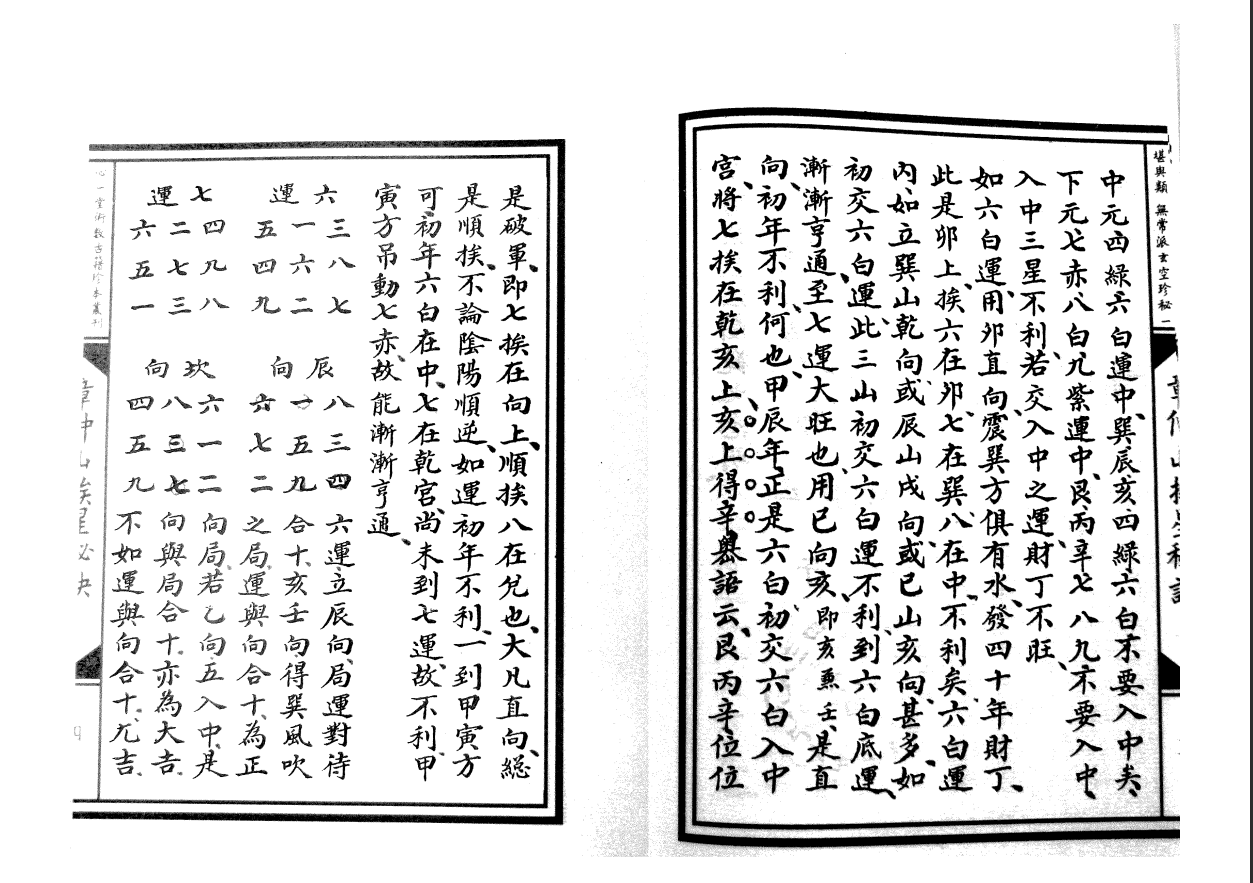 堪輿類 無常派玄空珍秘 一
中元四綠六白運中、巽辰亥四綠六白不要入中矣、
下元七赤八白九紫運中、艮丙辛七八九不要入中、
入中三星不利、若交入中之運財丁不旺、
如六白運、用卯直向、震巽方俱有水、發四十年財丁、
此是卯上、挨六在卯、七在巽、八在中、不利矣、六白運
內、如立巽山乾向、或辰山戌向、或巳山亥向、甚多、如
初交六白運、此三山初交六白運不利、到六白底運、
漸漸亨通、至七運大旺也、用巳向亥、即亥兼壬、是直
向、初年不利、何也、甲辰年正是六白初交六白入中
宮、將七挨在乾亥上、亥上得辛、奧語云、艮丙辛位位
是破軍、即七挨在向上、順挨八在兌也、大凡直向、総
是順挨、不論陰陽順逆、如運初年不利、一到甲寅方
可、初年六白在中、七在乾宮、尚未到七運、故不利、甲
寅方吊動七赤、故能漸漸亨通、
六運
三八七
一六二
五四九
辰向
八三四
一五九
六七二
六運立辰向、局運對待
合十、亥壬向得巽風吹
之局、運與向合十、為正
七運
四九八
二七三
六五一
坎向
六一二
八三七
四五九
向局、若乙向五入中、是
向與局合十、亦為大吉、
不如運與向合十、尤吉、
心一堂術數古籍珍本叢刊
章仲山挨星秘訣
四